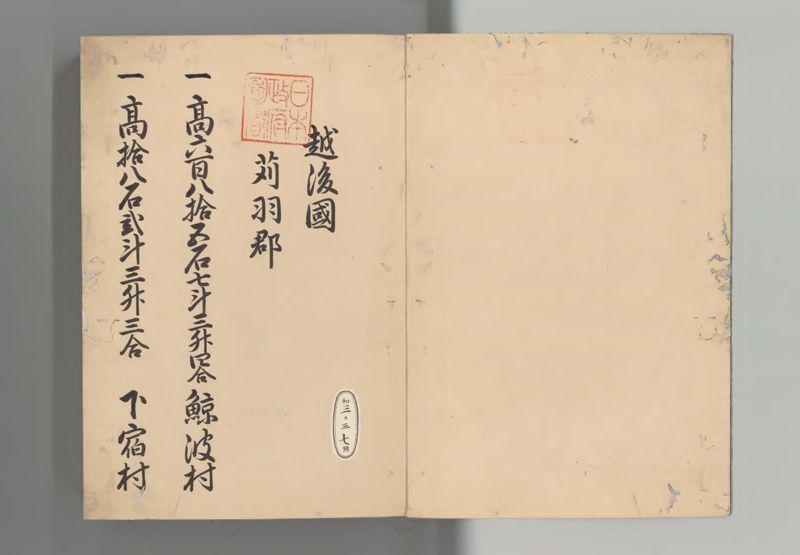 越後國
苅羽郡
一高六百八拾五石七斗三升四合 鯨波村
一高拾八石弐斗三升三合 下宿村
日本
政府
圖書